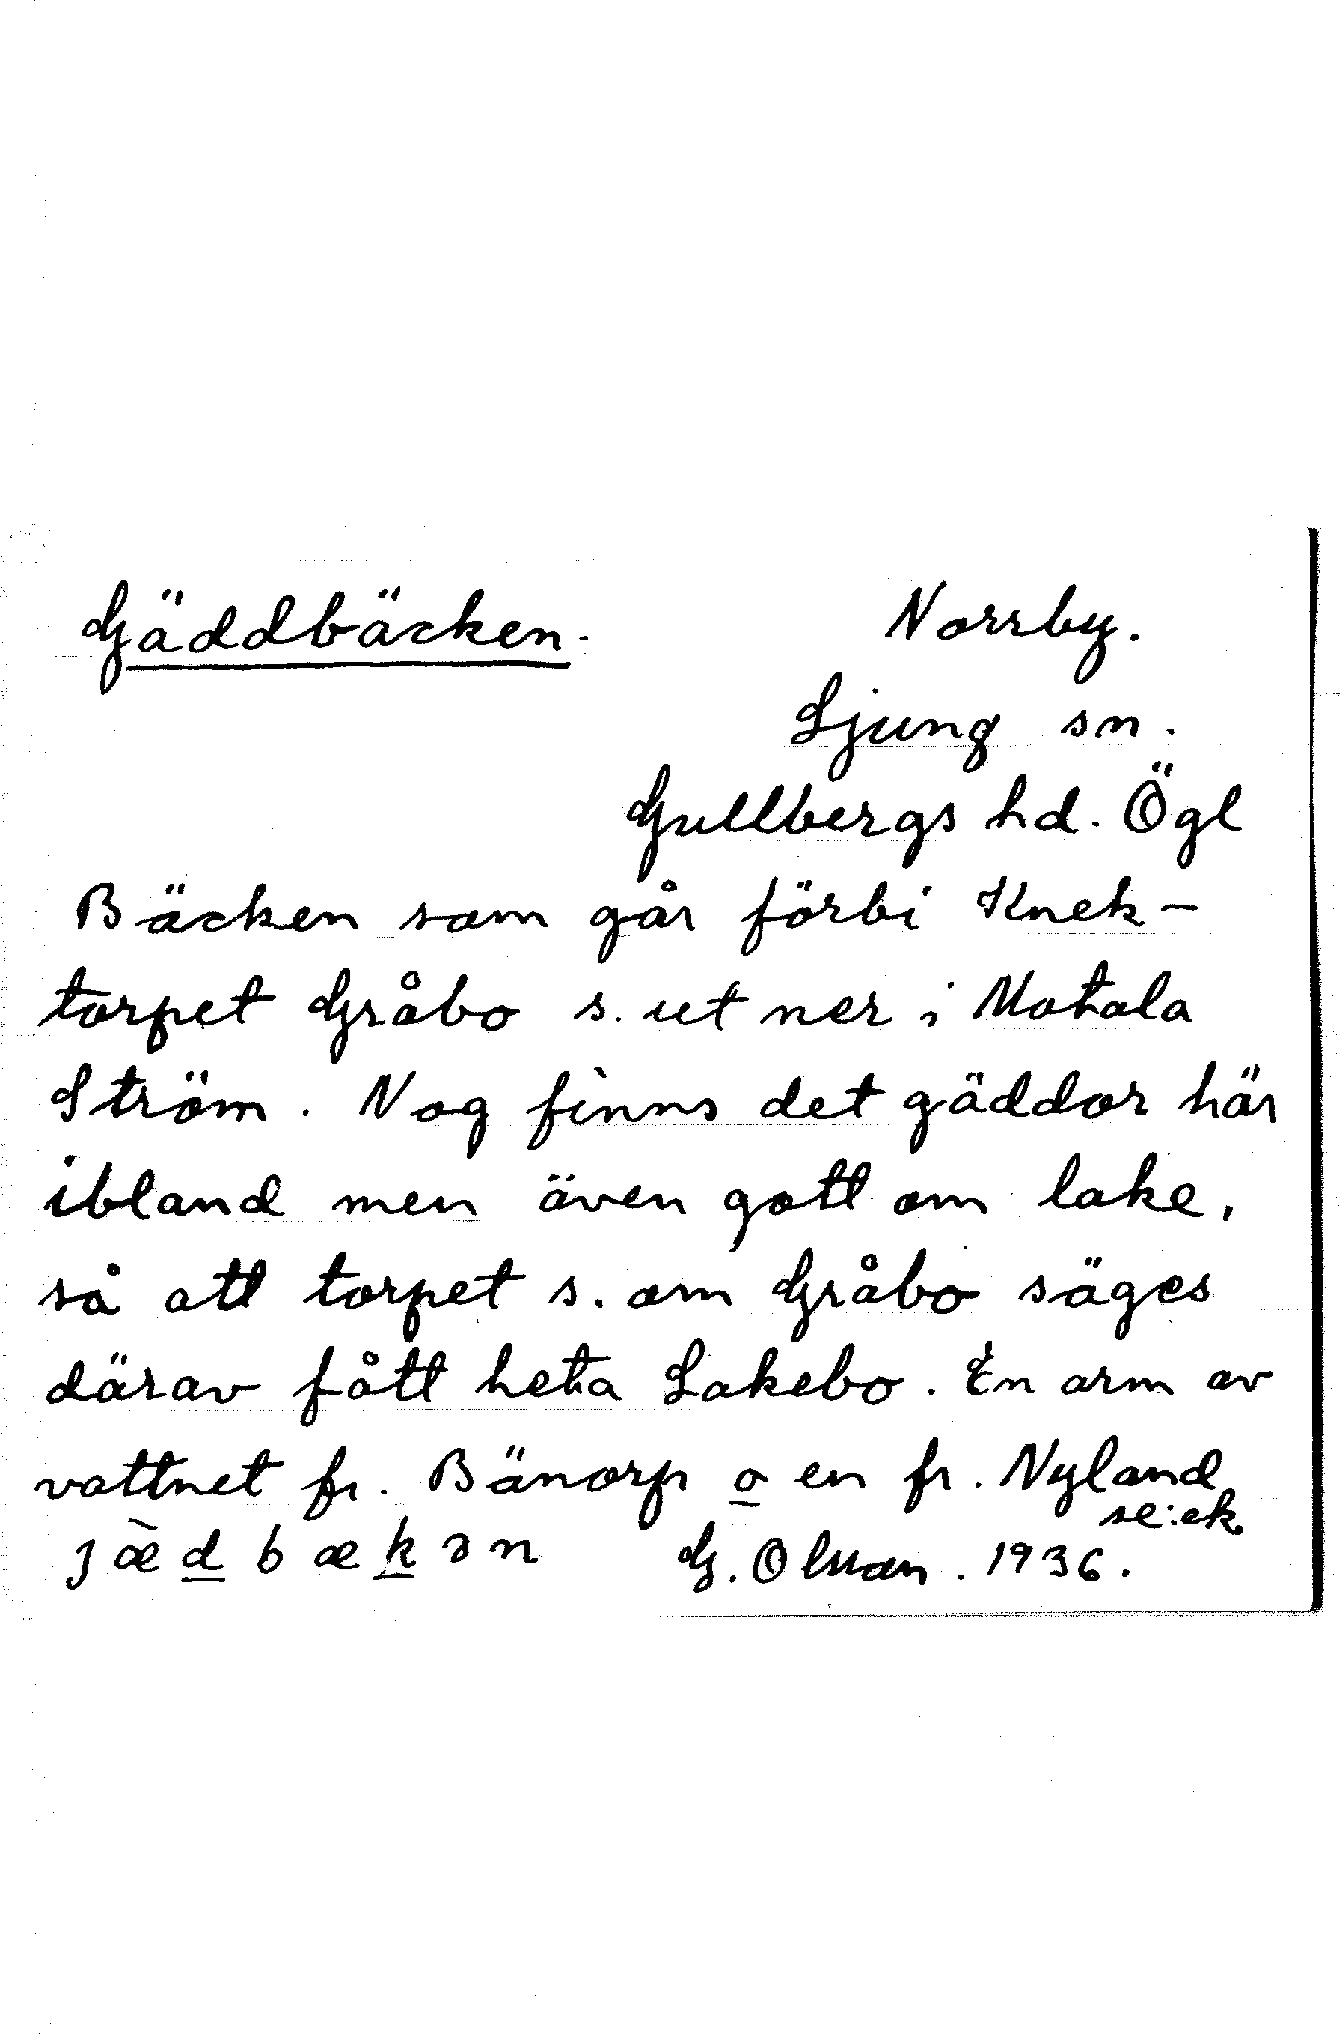 Gäddbäcken.
Norrby.
Ljung sn.
Gullbergs hd. Ögl
Bäcken som går förbi Knek-
torpet Gråbo s. ut ner i Motala
Ström. Nog finns det gäddor här
ibland men även gott om lake,
så att torpet s. om Gråbo säges
därav fått heta Lakebo. En arm av
vattnet fr. Bänorp o en fr. Nyland
se: ek.
jæ̀dbækən G. Olman. 1936.